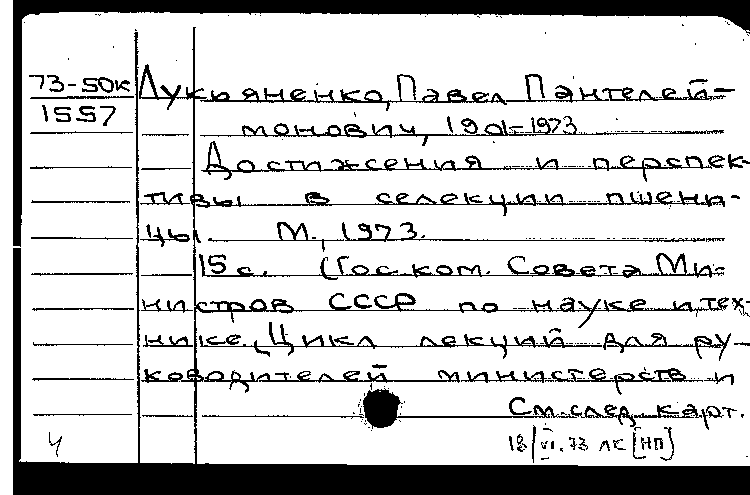 73-50к Лукьяненко, Павел Пантелей-
1557 монович, 1901-1973
Достижения и перспек-
тивы в селекции пшени-
цы. М., 1973.
15 с. (Гос. ком. Совета Ми-
нистров СССР по науке и тех-
нике. Цикл лекций для ру-
ководителей министерств и
См. след. карт.
4 18/VI.73 ЛК [НП]